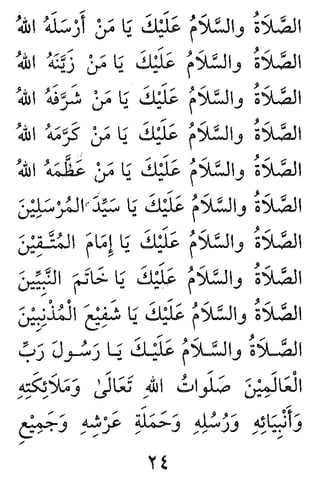 الصَّلَاةُ والسَّلَامُ عَلَيْكَ يَا مَنْ أَرْسَلَهُ اللهُ
الصَّلَاةُ والسَّلَامُ عَلَيْكَ يَا مَنْ زَيَّنَهُ اللهُ
الصَّلَاةُ والسَّلَامُ عَلَيْكَ يَا مَنْ شَرَّفَهُ اللهُ
الصَّلَاةُ والسَّلَامُ عَلَيْكَ يَا مَنْ كَرَّمَهُ اللهُ
الصَّلَاةُ والسَّلَامُ عَلَيْكَ يَا مَنْ عَظَّمَهُ اللهُ
الصَّلَاةُ والسَّلَامُ عَلَيْكَ يَا سَيِّدَ المُرْسَلِيْنَ
الصَّلَاةُ والسَّلَامُ عَلَيْكَ يَا إِمَامَ المُتَّقِيْنَ
الصَّلَاةُ والسَّلَامُ عَلَيْكَ يَا خَاتَمَ النَّبِيِّينَ
الصَّلَاةُ والسَّلَامُ عَلَيْكَ يَا شَفِيْعَ الْمُذْنِبِيْنَ
الصَّلَاةُ والسَّلَامُ عَلَيْكَ يَا رَسُولَ رَبِّ
الْعَالَمِيْنَ صَلَواتُ اللهِ تَعَالَىٰ وَمَلَائِكَتِهِ
وَأَنْبِيَائِهِ وَرُسُلِهِ وَحَمَلَةِ عَرْشِهِ وَجَمِيْعِ
٢٤